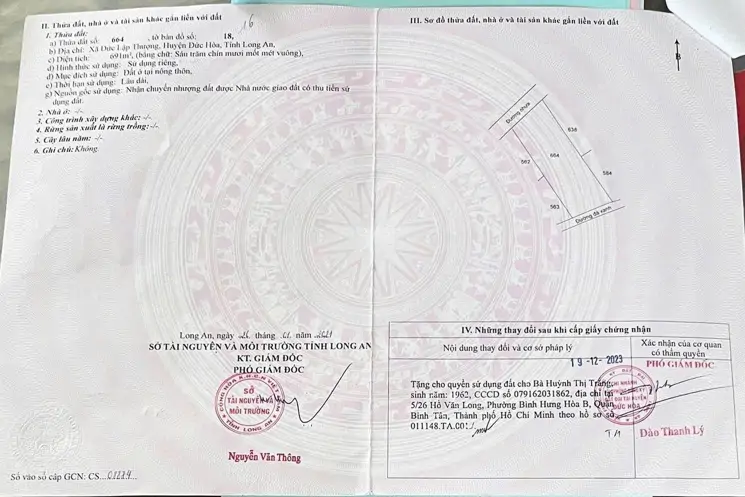 16
II. Thửa đất, nhà ở và tài sản khác gắn liền với đất
1. Thửa đất:
a) Thửa đất số: 664, tờ bản đồ số: 18,
b) Địa chỉ: Xã Đức Lập Thượng, Huyện Đức Hòa, Tỉnh Long An,
c) Diện tích: 691m², (bằng chữ: Sáu trăm chín mươi mốt mét vuông),
d) Hình thức sử dụng: Sử dụng riêng,
đ) Mục đích sử dụng: Đất ở tại nông thôn,
e) Thời hạn sử dụng: Lâu dài,
g) Nguồn gốc sử dụng: Nhận chuyển nhượng đất được Nhà nước giao đất có thu tiền sử
dụng đất.
2. Nhà ở: -/-
3. Công trình xây dựng khác: -/-
4. Rừng sản xuất là rừng trồng: -/-
5. Cây lâu năm: -/-
6. Ghi chú: Không.
Long An, ngày 26 tháng 01 năm 2021
SỞ TÀI NGUYÊN VÀ MÔI TRƯỜNG TỈNH LONG AN
KT. GIÁM ĐỐC
PHÓ GIÁM ĐỐC
SỞ
TÀI NGUYÊN VÀ
MÔI TRƯỜNG
TỈNH LONG AN
Nguyễn Văn Thông
Số vào sổ cấp GCN: CS...01274...
III. Sơ đồ thửa đất, nhà ở và tài sản khác gắn liền với đất
B
Đường nhựa
636
562
664
584
563
Đường đá xanh
IV. Những thay đổi sau khi cấp giấy chứng nhận
Nội dung thay đổi và cơ sở pháp lý
Xác nhận của cơ quan
có thẩm quyền
19-12-2023
PHÓ GIÁM ĐỐC
Tặng cho quyền sử dụng đất cho Bà Huỳnh Thị Trắng,
sinh năm: 1962, CCCD số 079162031862, địa chỉ tại
5/26 Hồ Văn Long, Phường Bình Hưng Hòa B, Quận
Bình Tân, Thành phố Hồ Chí Minh theo hồ sơ số
011148.TA.001./.
CHI NHÁNH
ĐỨC HÒA
Đào Thanh Lý